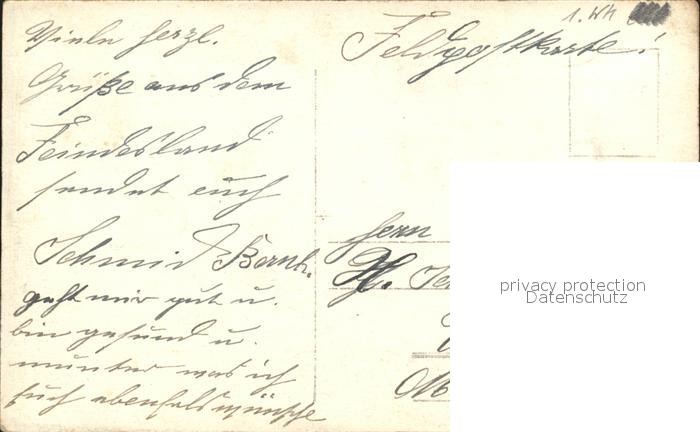 1. WK
Feldpostkarte!
Viele herzl.
Grüße aus dem
Feindesland
sendet euch
Schmid Bernh.
geht mir gut u.
bin gesund u.
munter was ich
euch ebenfals wünsche
Herrn
privacy protection
Datenschutz